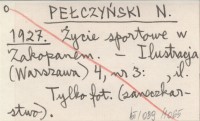 PEŁCZYŃSKI N.
1927. Życie sportowe w
Zakopanem. – Ilustracja
(Warszawa) 4, nr 3: il.
Tylko fot. (saneczkar-
stwo).